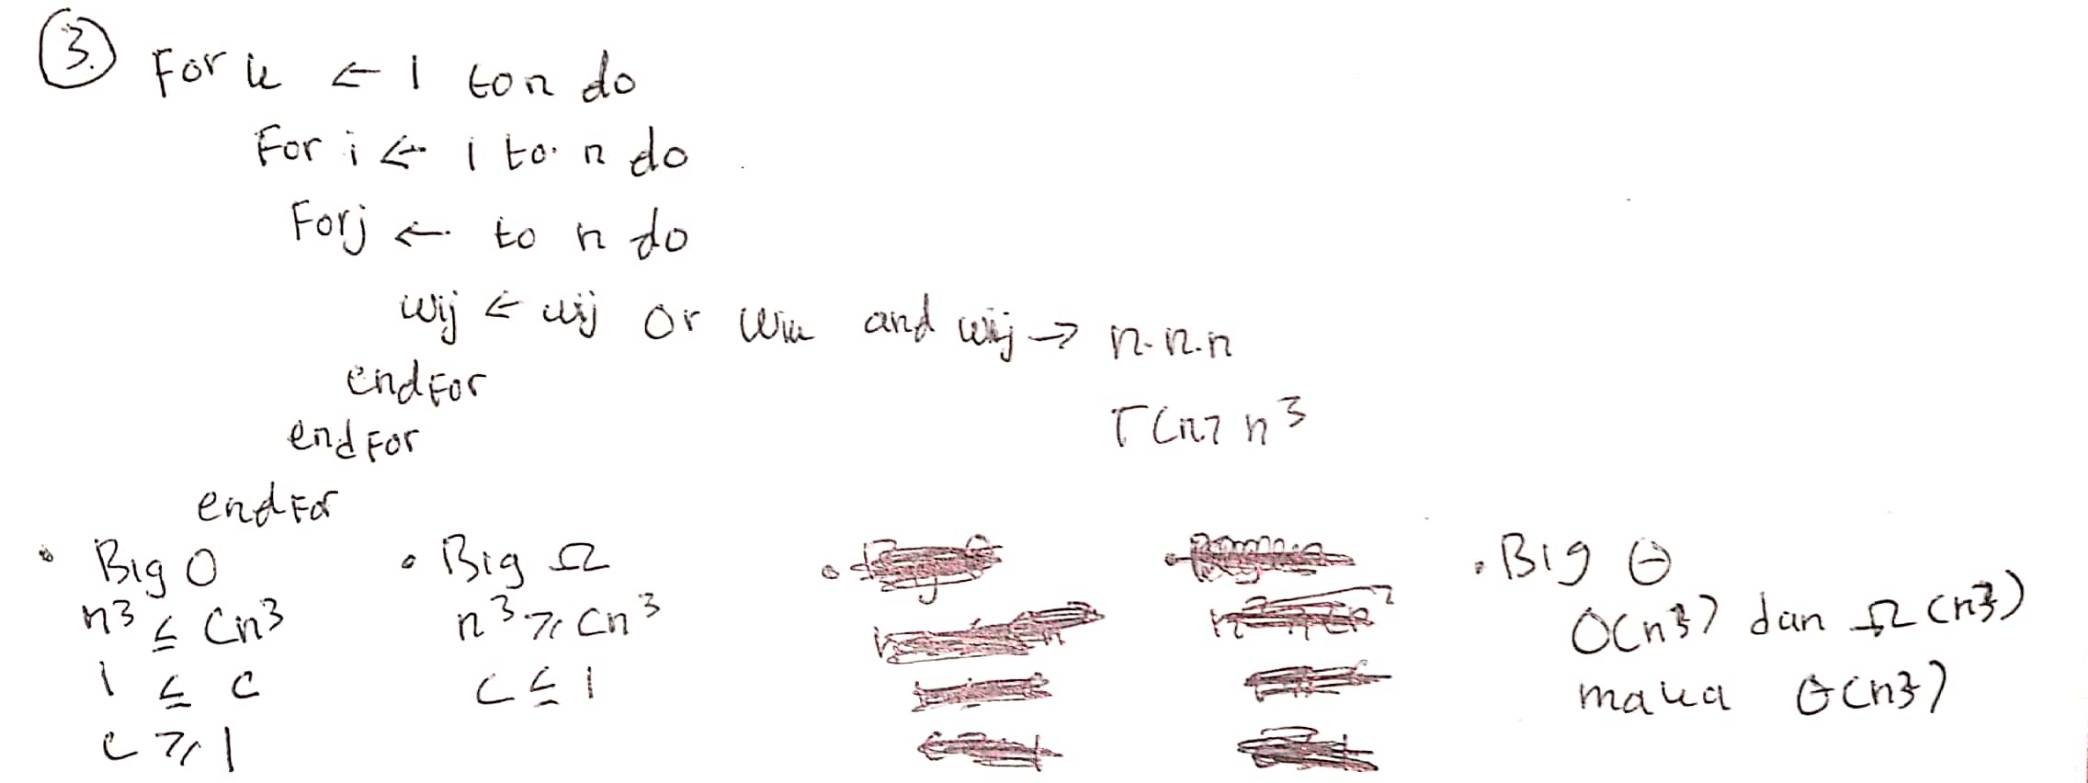 3.
For k ← 1 to n do
For i ← 1 to n do
For j ← to n do
wij ← wij or wik and wkj → n.n.n
endFor
T(n) n³
endFor
endFor
• Big O
n³ ≤ Cn³
1 ≤ c
c ≥ 1
• Big Ω
n³ ≥ Cn³
c ≤ 1
• Big Θ
O(n³) dan Ω(n³)
maka Θ(n³)